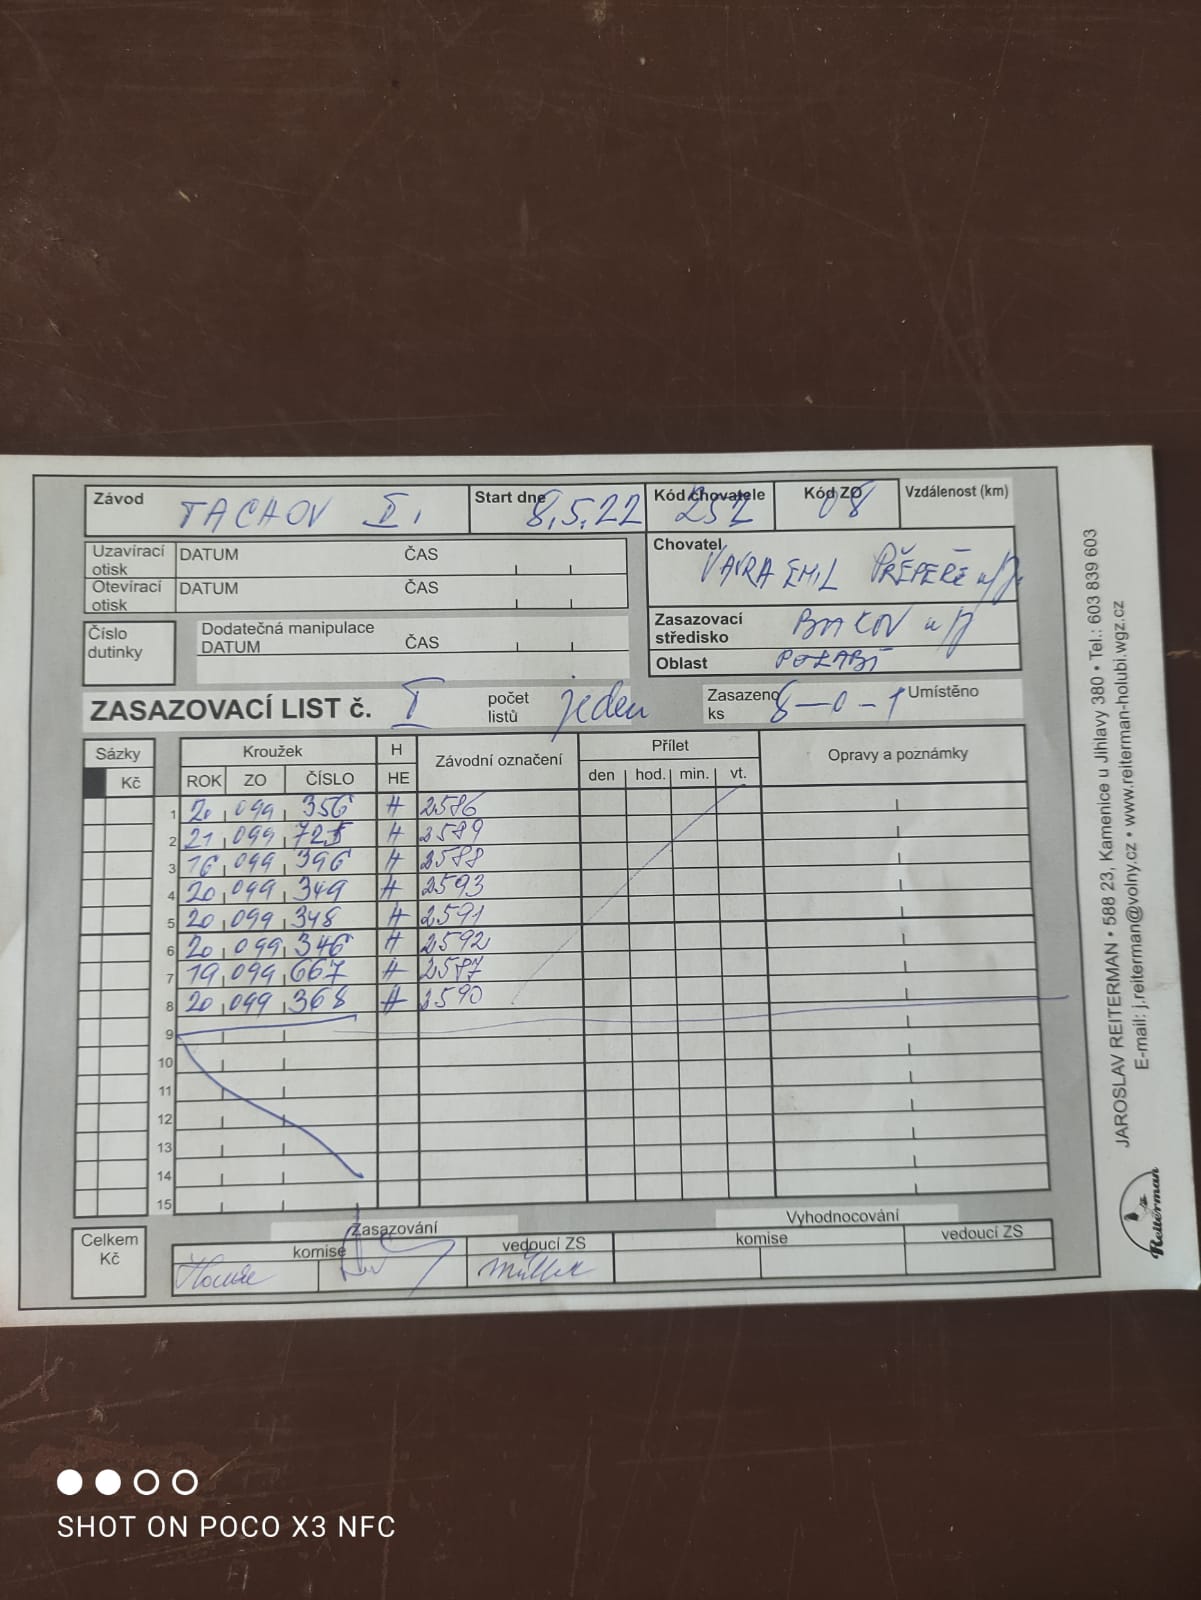 Závod TACHOV II. Start dne 8.5.22 Kód chovatele 252 Kód ZO 08 Vzdálenost (km)
Uzavírací otisk DATUM ČAS
Otevírací otisk DATUM ČAS
Chovatel VÁVRA EMIL PŘEPEŘE n/J.
Číslo dutinky
Dodatečná manipulace
DATUM ČAS
Zasazovací středisko BAKOV n/J
Oblast POLABÍ
ZASAZOVACÍ LIST č. I počet listů jeden Zasazeno ks 8-0-1 Umístěno
Sázky Kroužek H Závodní označení Přílet Opravy a poznámky
Kč ROK ZO ČÍSLO HE den hod. min. vt.
1 20 099 356 H 2586
2 21 099 725 H 2589
3 16 099 396 H 2588
4 20 099 349 H 2593
5 20 099 348 H 2591
6 20 099 346 H 2592
7 19 099 667 H 2587
8 20 099 368 H 2590
9
10
11
12
13
14
15
Celkem Kč
Zasazování Vyhodnocování
komise vedoucí ZS komise vedoucí ZS
Müller
JAROSLAV REITERMAN • 588 23, Kamenice u Jihlavy 380 • Tel.: 603 839 603
E-mail: j.reiterman@volny.cz • www.reiterman-holubi.wgz.cz
Reiterman
SHOT ON POCO X3 NFC